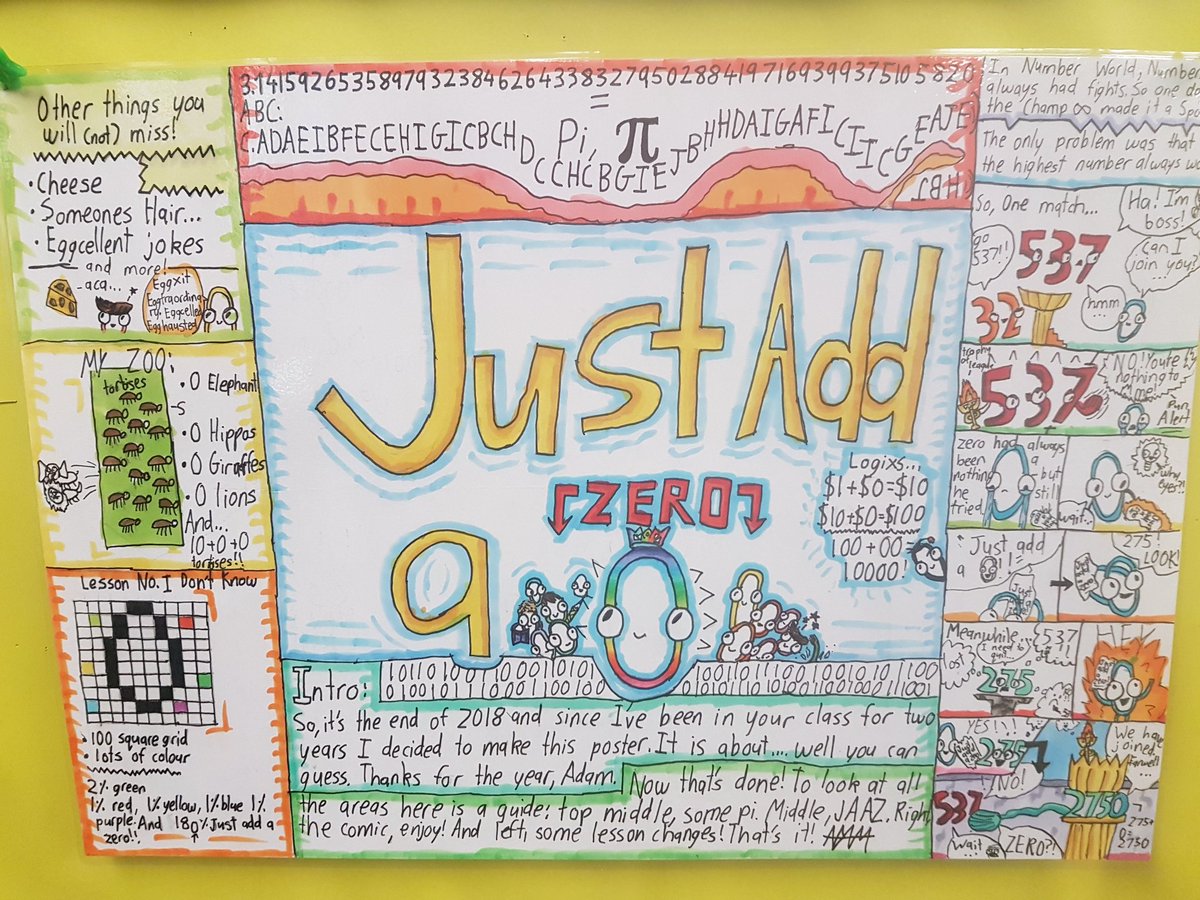 3.14159265358979323846264338327950288419716939937510 5820
=
ABC:
C.ADAEIBFECEHIGICBCHD
Pi, π
Other things you
will (not) miss!
• Cheese
• Someones Hair...
• Eggcellent jokes
and more!
-aca...
Eggxit
Eggtraording
ry. Eggcelled
Egghausted
MY ZOO:
tortises
• 0 Elephant
-s
• 0 Hippos
• 0 Giraffes
• 0 lions
And...
10+0+0
tortises!!
Lesson No. I Don't Know
• 100 square grid
• lots of colour
2% green
1% red, 1% yellow, 1% blue 1%
purple. And 180% Just add a
zero!!
Just Add
a
ZERO
Logixs...
$1+$0=$10
$10+$0=$100
100+00=
10000!
Intro:
So, it's the end of 2018 and since I've been in your class for two
years I decided to make this poster. It is about.... well you can
guess. Thanks for the year, Adam.
Now that's done! To look at all
the areas here is a guide: top middle, some pi. Middle, JAAZ. Right,
the comic, enjoy! And left, some lesson changes! That's it!
In Number World, Number
always had fights. So one da
the Champ ∞ made it a Spo
The only problem was that
the highest number always w
So, One match...
go
537!!
537
32
Ha! I'm
boss!
Can I
join you?
hmm
...
trophy
of league
537
NO! You're
nothing to
Me!
Pun
Alert
zero had always
been a
nothing but
he still
tried.
wait..
why
eyes?!
"Just add
a 0!!
275!
LOOK!
Meanwhile...
lost
537
2765
HEY
YES!
2765
NO!
We have
joined.
farwell
...
537
2750
wait
ZERO?!